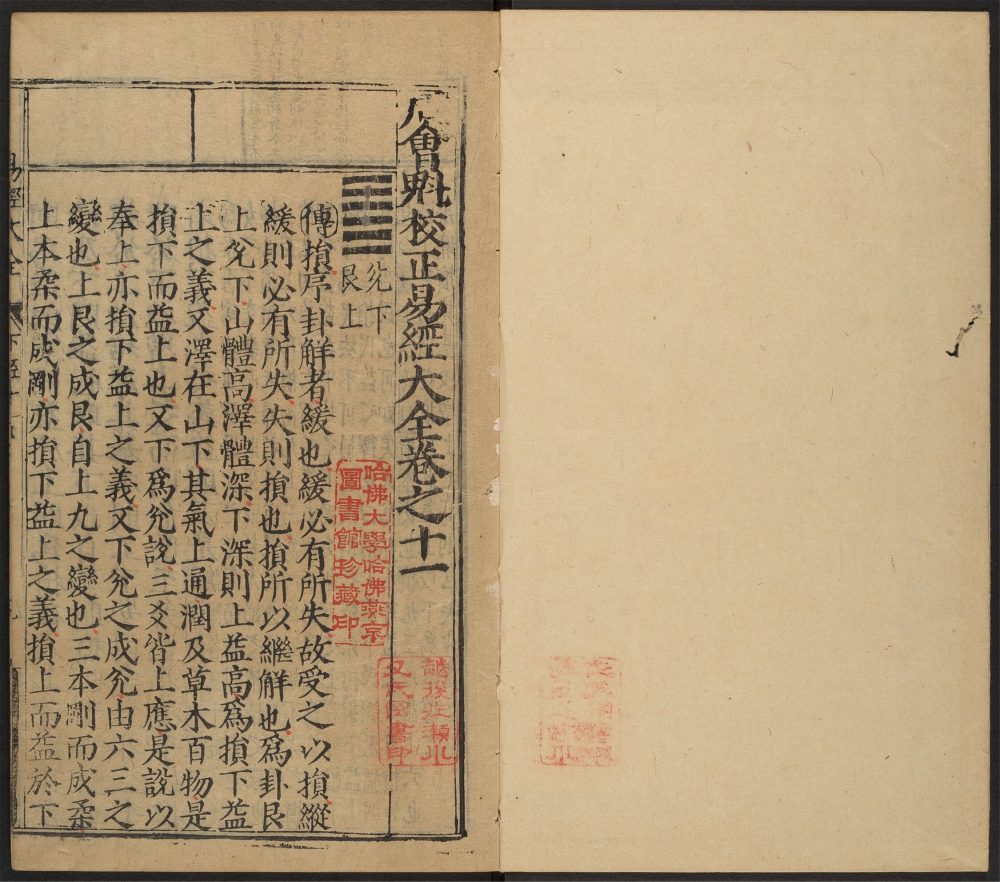 周會魁校正易經大全卷之十一
兌下
艮上
傳損序卦解者緩也緩必有所失故受之以損縱
緩則必有所失失則損也損所以繼解也爲卦艮
上兌下山體高澤體深下深則上益高爲損下益
上之義又澤在山下其氣上通潤及草木百物是
損下而益上也又下爲兌說三爻皆上應是說以
奉上亦損下益上之義又下兌之成兌由六三之
變也上艮之成艮自上九之變也三本剛而成柔
上本柔而成剛亦損下益上之義損上而益於下
易經大全
下經
哈佛大學哈佛燕京
圖書館珍藏印